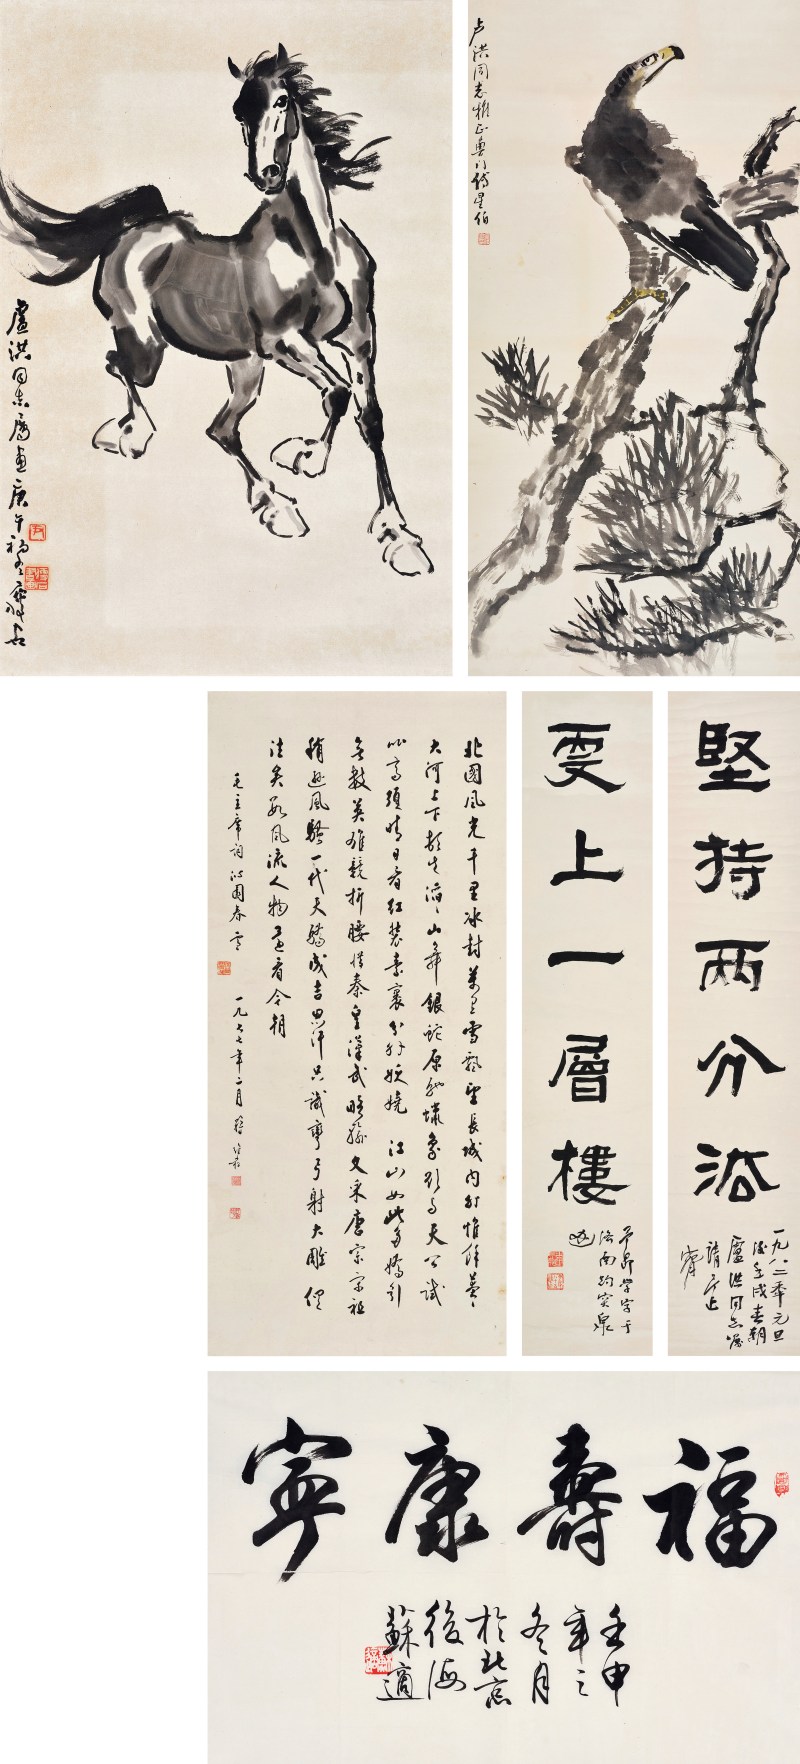 盧洪同志屬画庚午
卢洪同志雅正粤门傅星伯
堅持兩分法
一九八二年元旦
後壬戌春朝
盧洪同志囑
請斧正
更上一層樓
學字于
濟南趵突泉
北國風光千里冰封萬里雪飄望長城内外惟餘莽〻
大河上下頓失滔〻山舞銀蛇原馳蠟象欲与天公試
比高須晴日看红裝素裹分外妖嬈江山如此多嬌引
無數英雄競折腰惜秦皇漢武略輸文采唐宗宋祖
稍遜風騷一代天驕成吉思汗只識彎弓射大雕俱
往矣数風流人物還看今朝
毛主席詞沁園春雪
一九六七年二月
福壽康寧
壬申
年之
冬月
於北京
後海
蘇適